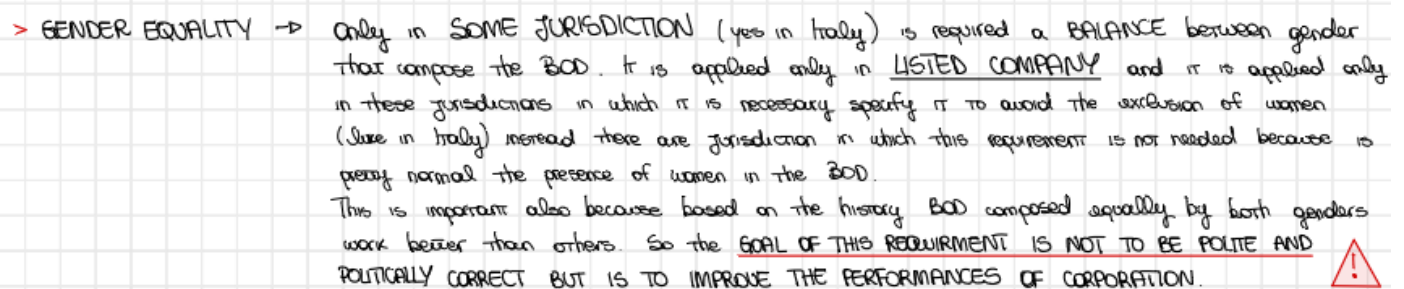 > GENDER EQUALITY → Only in SOME JURISDICTION (yes in Italy) is required a BALANCE between gender
that compose the BOD. It is applied only in LISTED COMPANY and it is applied only
in these jurisdictions in which it is necessary specify it to avoid the exclusion of women
(like in Italy) instead there are jurisdiction in which this requirement is not needed because is
pretty normal the presence of women in the BOD.
This is important also because based on the history BOD composed equally by both genders
work better than others. So the GOAL OF THIS REQUIRMENT IS NOT TO BE POLITE AND
POLITICALLY CORRECT BUT IS TO IMPROVE THE PERFORMANCES OF CORPORATION.